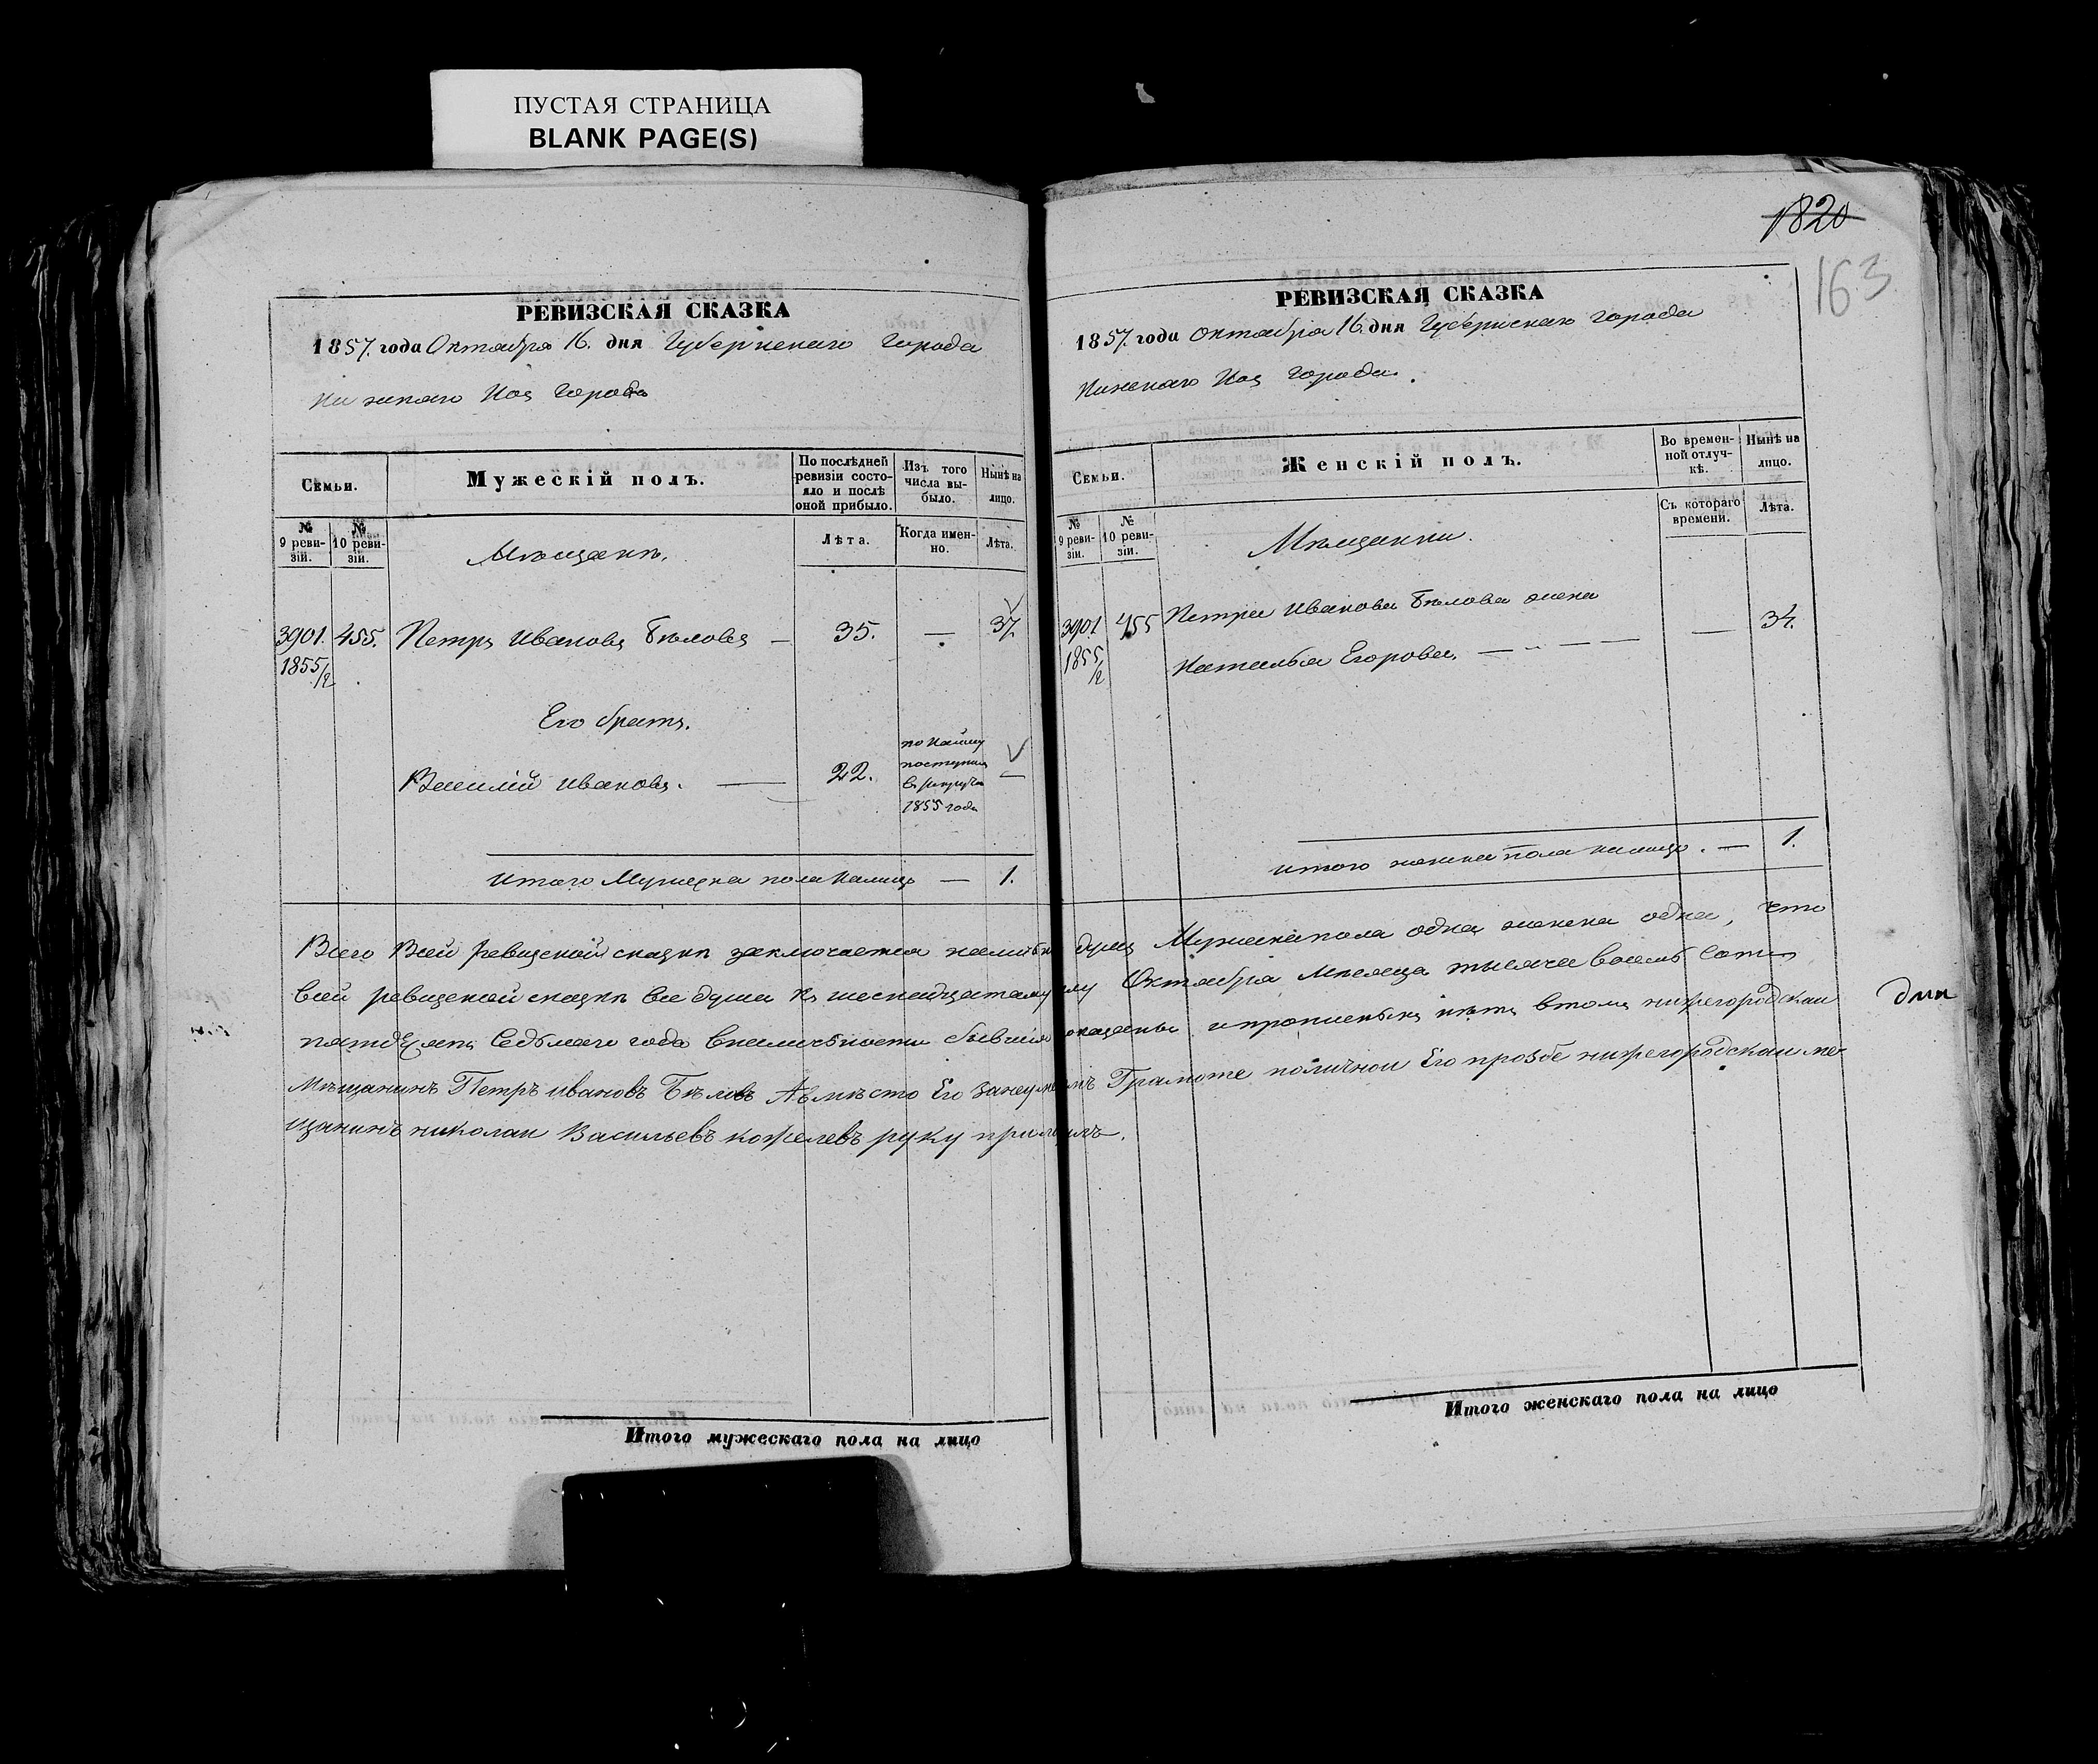 ПУСТАЯ СТРАНИЦА
BLANK PAGE(S)
РЕВИЗСКАЯ СКАЗКА
1857. года Октября 16. дня Губернскаго Города
Нижняго Нов Города
Семьи.
Мужескій полъ.
По послѣдней ревизіи состояло и послѣ оной прибыло.
Изъ того числа выбыло.
Нынѣ на лицо.
№ 9 ревизіи.
№ 10 ревизіи.
Мѣщане.
Лѣта.
Когда именно.
Лѣта.
3901. 455. Петръ Ивановъ Бѣловъ — 35. — 37.
1855/2
Его братъ.
Василій Ивановъ. — 22. по найму поступилъ в рекруты 1855 года —
Итого Мужеска пола налицо — 1.
Итого мужескаго пола на лицо
1820
163
РЕВИЗСКАЯ СКАЗКА
1857. года Октября 16. дня Губернскаго Города
Нижняго Нов Города.
Семьи.
Женскій полъ.
Во временной отлучкѣ.
Нынѣ на лицо.
№ 9 ревизіи.
№ 10 ревизіи.
Мѣщанки.
Съ котораго времени.
Лѣта.
3901 455 Петра Иванова Бѣлова жена
1855/2 Наталья Егорова. — — 34.
Итого женска пола налицо. — 1.
Всего Всей ревизской сказкѣ заключается налицо душъ Мужеска пола одна женска одна, что
всей ревизской сказкѣ все души къ шеснадцатому Октября Мѣсяца тысяча восемь сотъ
пятдесятъ Седьмаго года вналичности бывшія показаны и прописныхъ нѣтъ втомъ нижегородскаи
Мѣщанинъ Петръ ивановъ Бѣловъ Авмѣсто Его Грамоте поличнои Его прозбе нижегородскаи ме
щанинъ николаи Васильевъ кожелевъ руку приложилъ.
Итого женскаго пола на лицо